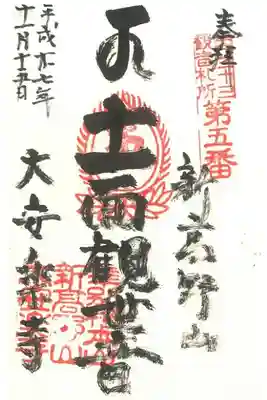 奉拝
観音札所
第五番
新高野山
十一面観世音
大安楽寺
平成廿七年
十一月十五日